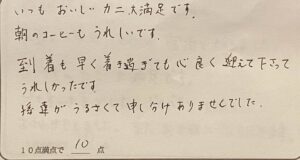 いつも おいしい カニ 大満足です。
朝のコーヒーも うれしいです。
到着も早く着き過ぎても心良く 迎えて下さって
うれしかったです
がうるさくて申し分けありませんでした。
10点満点で 10 点